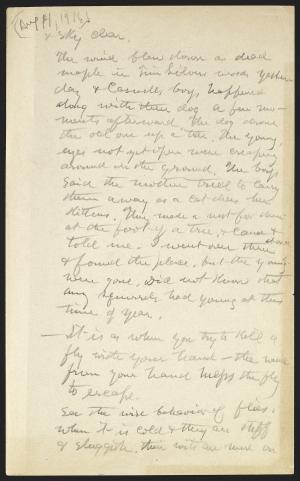 (Aug 11, 1916)
& sky clear.
The wind blew down a dead
maple in Jim Silvers woods yester-
day & Caswells boys happened
along with their dog a few mo-
ments afterward. The dog drove
the old one up a tree. The young,
eyes not yet open were creeping
around on the ground. The boys
said the mother tried to carry
them away as a cat does her
kittens. They made a nest for them
at the foot of a tree & came &
told me. I went over there
& found the place, but the young
were gone. Did not know that
any squirrels had young at this
time of year.
— It is as when you try to kill a
fly with your hand - the wind
from your hand helps the fly
to escape.
See the wise behavior of flies,
when it is cold & they are stiff
& sluggish, their wits are more on